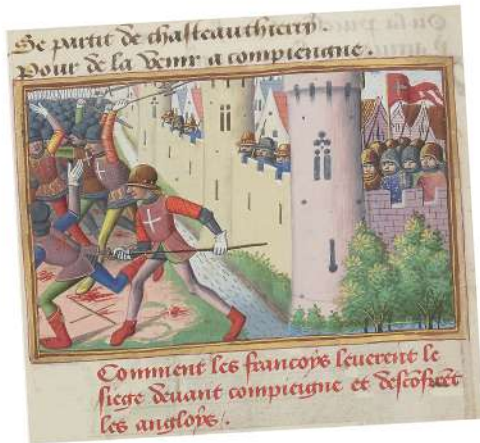 Se partit de chasteauthierry.
Pour de la venir a compiengne.
Comment les francoys leuerent le
siege deuant compieigne et
les angloys.